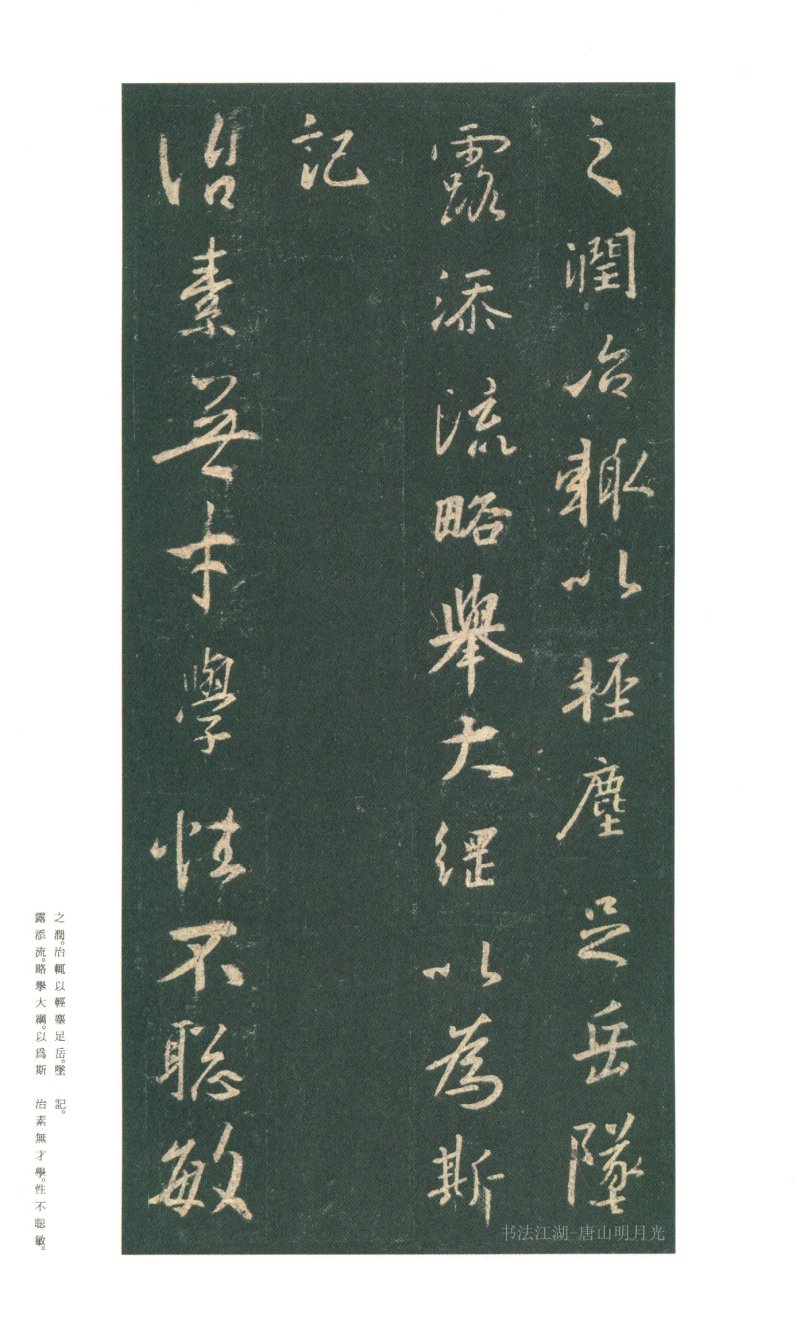 之潤治輙以輕塵足岳墜
露添流略舉大綱以為斯
記
治素無才學性不聡敏
之潤。治輒以輕塵足岳。墜
露添流。略舉大綱。以爲斯
記。
治素無才學。性不聡敏。
书法江湖-唐山明月光